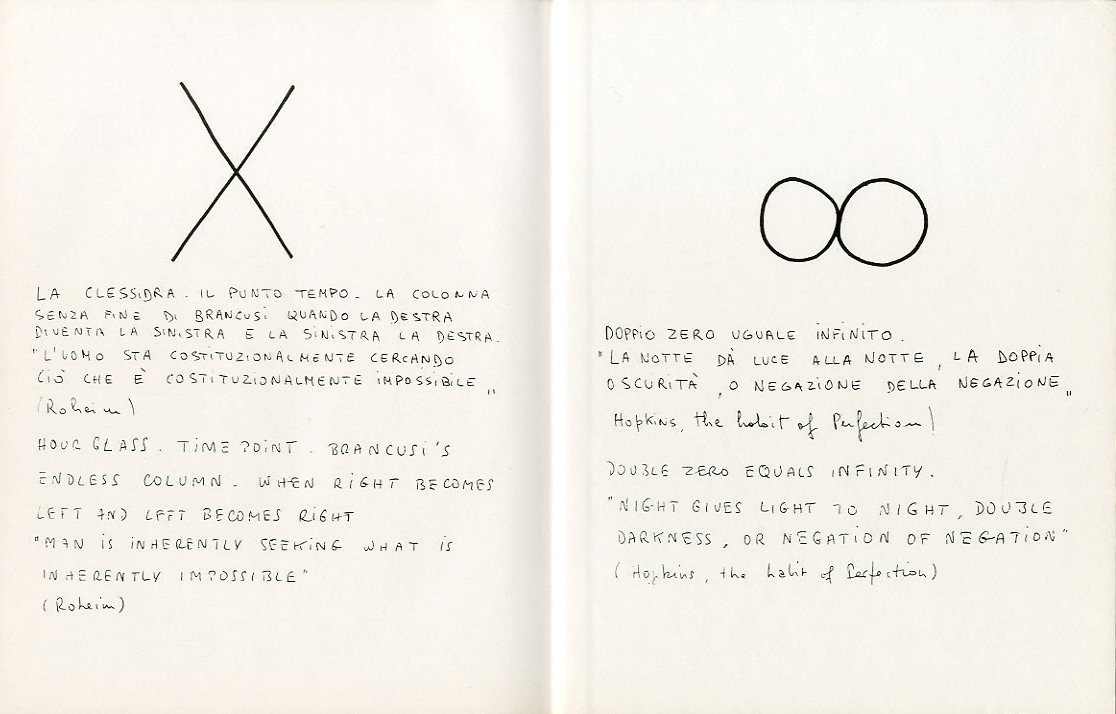 LA CLESSIDRA. IL PUNTO TEMPO. LA COLONNA
SENZA FINE DI BRANCUSI QUANDO LA DESTRA
DIVENTA LA SINISTRA E LA SINISTRA LA DESTRA.
"L'UOMO STA COSTITUZIONALMENTE CERCANDO
CIÒ CHE È COSTITUZIONALMENTE IMPOSSIBILE"
(Roheim)
HOUR GLASS. TIME POINT. BRANCUSI'S
ENDLESS COLUMN. WHEN RIGHT BECOMES
LEFT AND LEFT BECOMES RIGHT
"MAN IS INHERENTLY SEEKING WHAT IS
INHERENTLY IMPOSSIBLE"
(Roheim)
DOPPIO ZERO UGUALE INFINITO.
"LA NOTTE DÀ LUCE ALLA NOTTE, LA DOPPIA
OSCURITÀ, O NEGAZIONE DELLA NEGAZIONE"
Hopkins, the habit of Perfection)
DOUBLE ZERO EQUALS INFINITY.
"NIGHT GIVES LIGHT TO NIGHT, DOUBLE
DARKNESS, OR NEGATION OF NEGATION"
(Hopkins, the habit of Perfection)